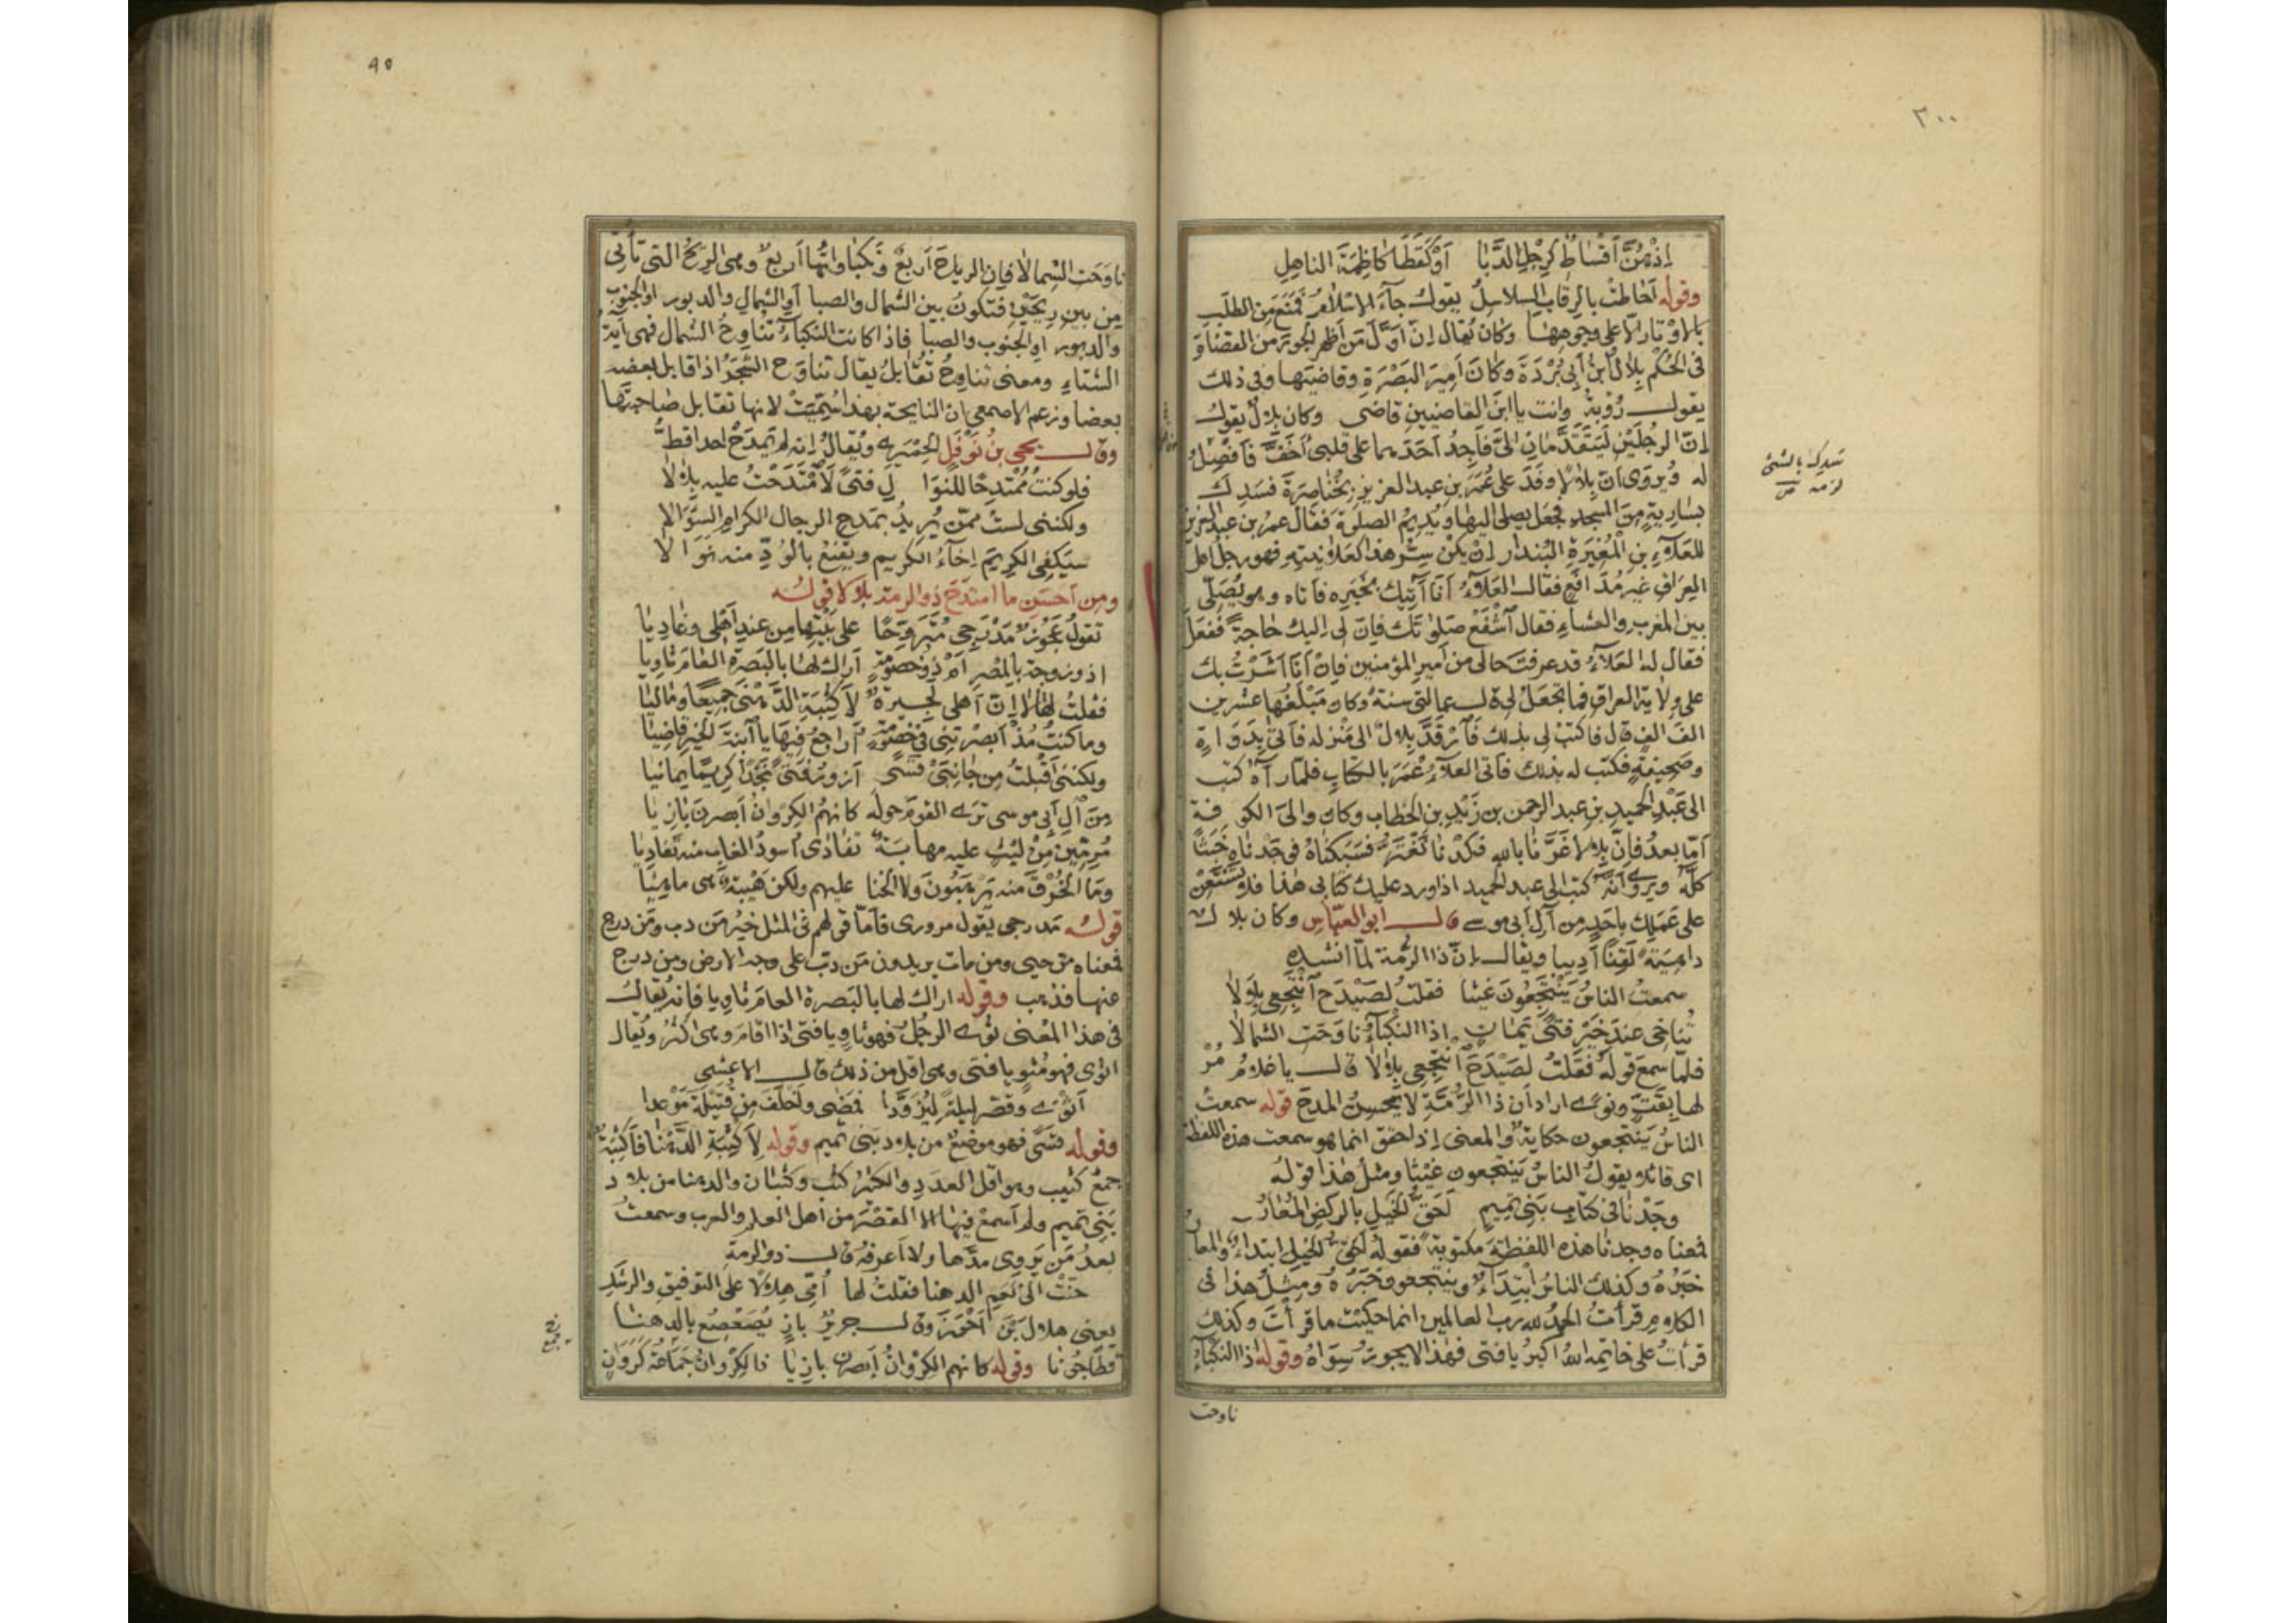 ٣٠٠
إِذْ هُنَّ أَقْسَاطٌ كَرِجْلِ الدَّبَا أَوْ كَقَطَا كَاظِمَةَ النَاهِلِ
وقوله أَحَاطَتْ بِالرِقَابِ السَلاسِلُ يقول جآءَ الإسْلامُ فمَنَعَ مِنَ الطَلَبِ
بالاوْتار الّا على وجوهها وكان يُقال إنّ أوّلَ مَن أظهر الجورَ من القضاة
فى الحُكْمِ بِلالُ بْنُ أَبِى بُرْدَةَ وكَانَ أَمِيرَ البَصْرَةِ وقاضيَها وفى ذلك
يقول رُؤبَةُ وانت يا ابنَ القاضيينِ قاضى وكان بلالٌ يقول
إنّ الرجُلَيْنِ لَيَتَقَدَّمَانِ الىَّ فَأَجِدُ أَحَدَهما على قلبى أخَفَّ فأفْصِلُ
له ويُروَى انّ بِلالًا وفَدَ على عُمَرَ بنِ عبدِ العزيز بِخُنَاصِرَةَ فسَدِكَ
بسَارِيَةٍ مِنَ المسجدِ فجعَل يصلى اليها ويُدِيمُ الصلوةَ فقال عمرُ بن عبد العزيز
للعَلَآءِ بنِ الْمُغِيرَةِ البُنْدَارِ إنْ يكُنْ سِرُّ هذا كعَلانِيتِهِ فهو رجلُ اهل
العِراقِ غيرَ مُدَافَعٍ فقال العَلآءُ أنا آتِيك بخَبَرِه فأتاه وهو يُصَلّى
بين المغربِ والعشاءِ فقال ٱشْفَعْ صلوتَك فإنّ لى اليك حَاجةً ففعَلَ
فقال له العَلآءُ قد عرفتَ حالى من أميرِ المؤمنين فإنْ أَنَا أَشَرْتُ بك
على ولايةِ العراقِ فما تجعَلُ لى قال عمالتى سنةً وكان مَبْلَغُها عشرين
الفَ الفٍ قال فاكتبْ لى بذلك فَٱرْقَدَّ بِلالٌ الى مَنْزله فأتى بِدَوَاةٍ
وصَحِيفةٍ فكتَب له بذلك فأتى العلآءُ عُمَرَ بالكتابِ فلمّا رآهُ كتب
الى عَبْدِ الحَمِيدِ بنِ عبد الرحمن بن زَيْدِ بنِ الخطاب وكان والىَ الكوفةِ
أمّا بعدُ فإنّ بِلالا غَرَّنَا بالله فكِدْنا نَغْتَرُّ فسَبَكنَاهُ فوجَدْناه خَبَثًا
كلَّه ويروى أنّه كتب الى عبد الحميد اذا ورد عليك كتابى هٰذا فلا تَسْتَعِنْ
على عَمَلِك بأحَدٍ مِن آلِ أبى موسى قال ابو العبّاس وكان بلال
دَاهِيَةً لَقِنًا أَدِيبا ويقال إنّ ذا الرُّمة لمّا انشده
سمعتُ الناسُ يَنْتَجِعُونَ غيثا فقلتُ لصَيْدَحَ ٱنْتَجِعِى بِلَالَا
تُنَاخِى عند خَيْرِ فتًى يَمَانٍ إذا النَكْباءُ نَاوَحَتِ الشمالَا
فلمّا سمِع قولَه فَقُلتُ لصَيْدَحَ ٱنْتَجِعِى بِلالَا قال يا غلامُ مُرْ
لها بقَتٍّ ونَوًى اراد أنّ ذا الرُمَّةِ لا يُحسِنُ المدحَ قوله سمعتُ
الناسُ يَنْتجعون حكايةٌ والمعنى إذا حُقّق انما هو سمعت هذه اللفظةَ
اى قائلا يقولُ الناسُ يَنتَجِعون غَيْثًا ومثلُ هٰذا قولُه
وجَدْنَا فى كتابِ بَنِى تَمِيمٍ أَحَقُّ الخَيْلِ بالركضِ المُعَارُ
فمعناه وجدنا هذه اللفظةَ مكتوبةً فقوله أحَقُّ الخيلِ ابتداءٌ والمعارُ
خَبَرُهُ وكذلك الناسُ ابْتِدَآءٌ وينتجعون خَبَرُهُ ومِثلُ هذا فى
الكلامِ قرأتُ الحمدُ لله ربِّ العالمين انما حكيْتَ ما قرأتَ وكذلك
قرأتُ على خاتِمِه اللهُ اكبرُ يا فتى فهٰذا لا يجوزُ سِوَاهُ وقوله إذا النَكْباءُ
ناوحت
٩٥
نَاوَحَت الشَمالَا فإن الرياحَ أربعٌ ونَكْباواتُها أربعٌ وهى الرِيحُ التى تأتى
مِن بينِ رِيحَيْنِ فتكونُ بين الشَمال والصبا أوِ الشمال والدبور او الجنوب
والدبور اوِ الجنوب والصبا فإذا كانت النكباءُ تُنَاوِحُ الشَمال فهى آيَةُ
الشتاءِ ومعنى تناوحُ تُقَابلُ يقال تناوَح الشَجَرُ اذا قابل بعضُه
بعضا وزعم الاصمعى ان النايحةَ بهذا سُمِّيَتْ لانها تقابل صاحبتَها
وقال يحيى بنُ نَوْفَلٍ الحِمْيَرِىّ ويُقالُ إنه لم يَمدَحْ احدا قطُّ
فلو كنتُ مُمْتدِحًا للنَوَا لِ فتًى لَٱمْتَدَحْتُ عليه بِلالَا
ولكننى لستُ ممّن يُرِيدُ بمَدحِ الرجالِ الكرامِ السُؤالَا
سيَكفِى الكرِيمَ إخآءُ الكَرِيم ويَقْنَعُ بالوُدِّ منه نَوَالَا
ومن أحسَنِ ما امتَدَحَ ذو الرمة بلالا قوله
تقولُ عَجُوزٌ مَدْرَجِى مُتَرَوِّحًا على بَيْتِها مِن عندِ أَهْلى وغاديا
اذو زوجةٍ بالمصرِ أَمْ ذو خصومةٍ أراك لها بالبَصرةِ العَامَ ثاوِيا
فقلتُ لها لا إنّ أهلى لَجِيرةٌ لأَكْثِبَةِ الدَّهْنَى جميعًا ومَاليَا
وما كنتُ مُذْ أَبْصَرْتِنِى فى خصومةٍ أراجعُ فيها يا ٱبنةَ الخيرِ قاضِيَا
ولكننى أَقبَلتُ مِن جَانِبَىْ قَسًى أَزُورُ فتًى نَجْدًا كريمًا يمانيا
مِن آلِ أبى موسى ترى القومَ حولَه كانهمُ الكِرْوانُ أبصرنَ بَازِيا
مُرِمِّينَ مِنْ لَيْثٍ عليه مهابَةٌ تفادَى أُسودُ الغابِ منه تفَادِيا
وما الخُرْقَ منه يَرْهَبُونَ ولا الخَنا عليهم ولكن هَيْبَةٌ هى ماهِيَا
قوله مَدرجى يقول مرورى فأمّا قولهم فى المثل خيرُ مَن دب ومَن درج
فمعناه مَن حيى ومن مات يريدون مَن دبّ على وجه الارض ومن درج
عنها فذهب وقوله اراك لها بالبَصرة العامَ ثاوِيا فإنه يُقالُ
فى هذا المعْنى ثَوَى الرجُلُ فهو ثاوٍ يا فتى اذا اقام وهى اكثرُ ويُقال
اثْوَى فهو مُثْوٍ يا فتى وهى اقل من ذلك قال الاعشى
أَثْوَى وقَصَّر ليلةً لِيُزَوَّدَا فمضى وأخلَفَ مِن قُتَيْلَةَ مَوْعِدا
وقوله قسًى فهو موضعٌ من بلاد بَنى تميم وقوله لأَكْثِبَةِ الدَهْنَا فأَكْثِبَةٌ
جمعُ كثيب وهو اقل العدَدِ والكثيرُ كثب وكثبان والدهنا من بلاد
بَنِى تميم ولم أسمعْ فيها إلا القصْرَ من أهل العلم والعرب وسمعتُ
بعدُ مَن يَروِى مدَّها ولا أعرفُه قال ذو الرمةِ
حنّتْ الى نَعَمِ الدهنا فقلتُ لها أُمِّى هِلالًا على التوفيقِ والرشَدِ
يعنى هلال بنَ أَحْوَزَ وقال جريرٌ بازٍ يُصَعْصِعُ بالدهنا
قطًا جُونَا وقوله كانهم الكِرْوانُ أبصرن بازيا فالكِرْوانُ جَمَاعَةُ كَرَوَانٍ